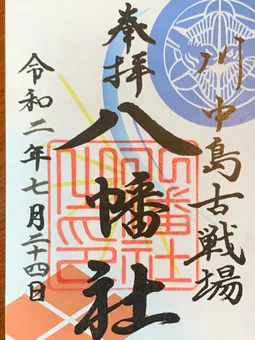 川中島古戦場
奉拝
八幡社
令和二年七月二十四日